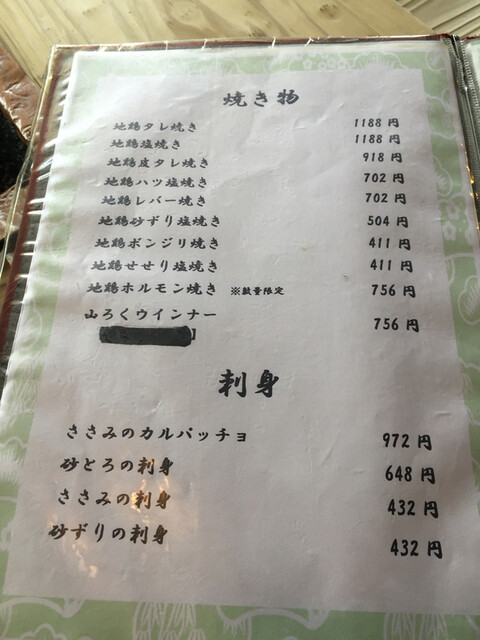 焼き物
地鶏タレ焼き 1188 円
地鶏塩焼き 1188 円
地鶏皮タレ焼き 918 円
地鶏ハツ塩焼き 702 円
地鶏レバー焼き 702 円
地鶏砂ずり塩焼き 504 円
地鶏ボンジリ焼き 411 円
地鶏せせり塩焼き 411 円
地鶏ホルモン焼き ※数量限定 756 円
山ろくウインナー 756 円
刺身
ささみのカルパッチョ 972 円
砂とろの刺身 648 円
ささみの刺身 432 円
砂ずりの刺身 432 円